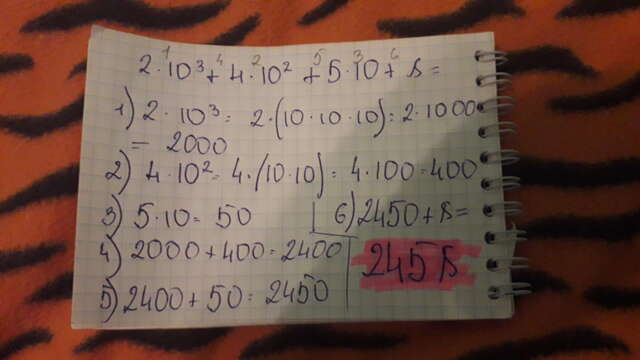 1 4 2 5 3 6
2·10³+4·10²+5·10+8=
1) 2·10³=2·(10·10·10)=2·1000
=2000
2) 4·10²=4·(10·10)=4·100=400
3) 5·10=50
4) 2000+400=2400
5) 2400+50=2450
6) 2450+8=
2458